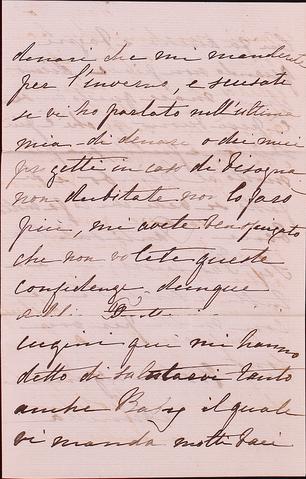 denari che mi manderete
per l'inverno, e scusate
se vi ho parlato nell'ultima
mia di denari o dei miei
progetti in caso di bisogna
non dubitate non lo farò
più, mi avete ben spiegato
che non volete queste
confidenze dunque
cugini qui mi hanno
detto di salutarvi tanto
anche Baby il quale
vi manda molti baci